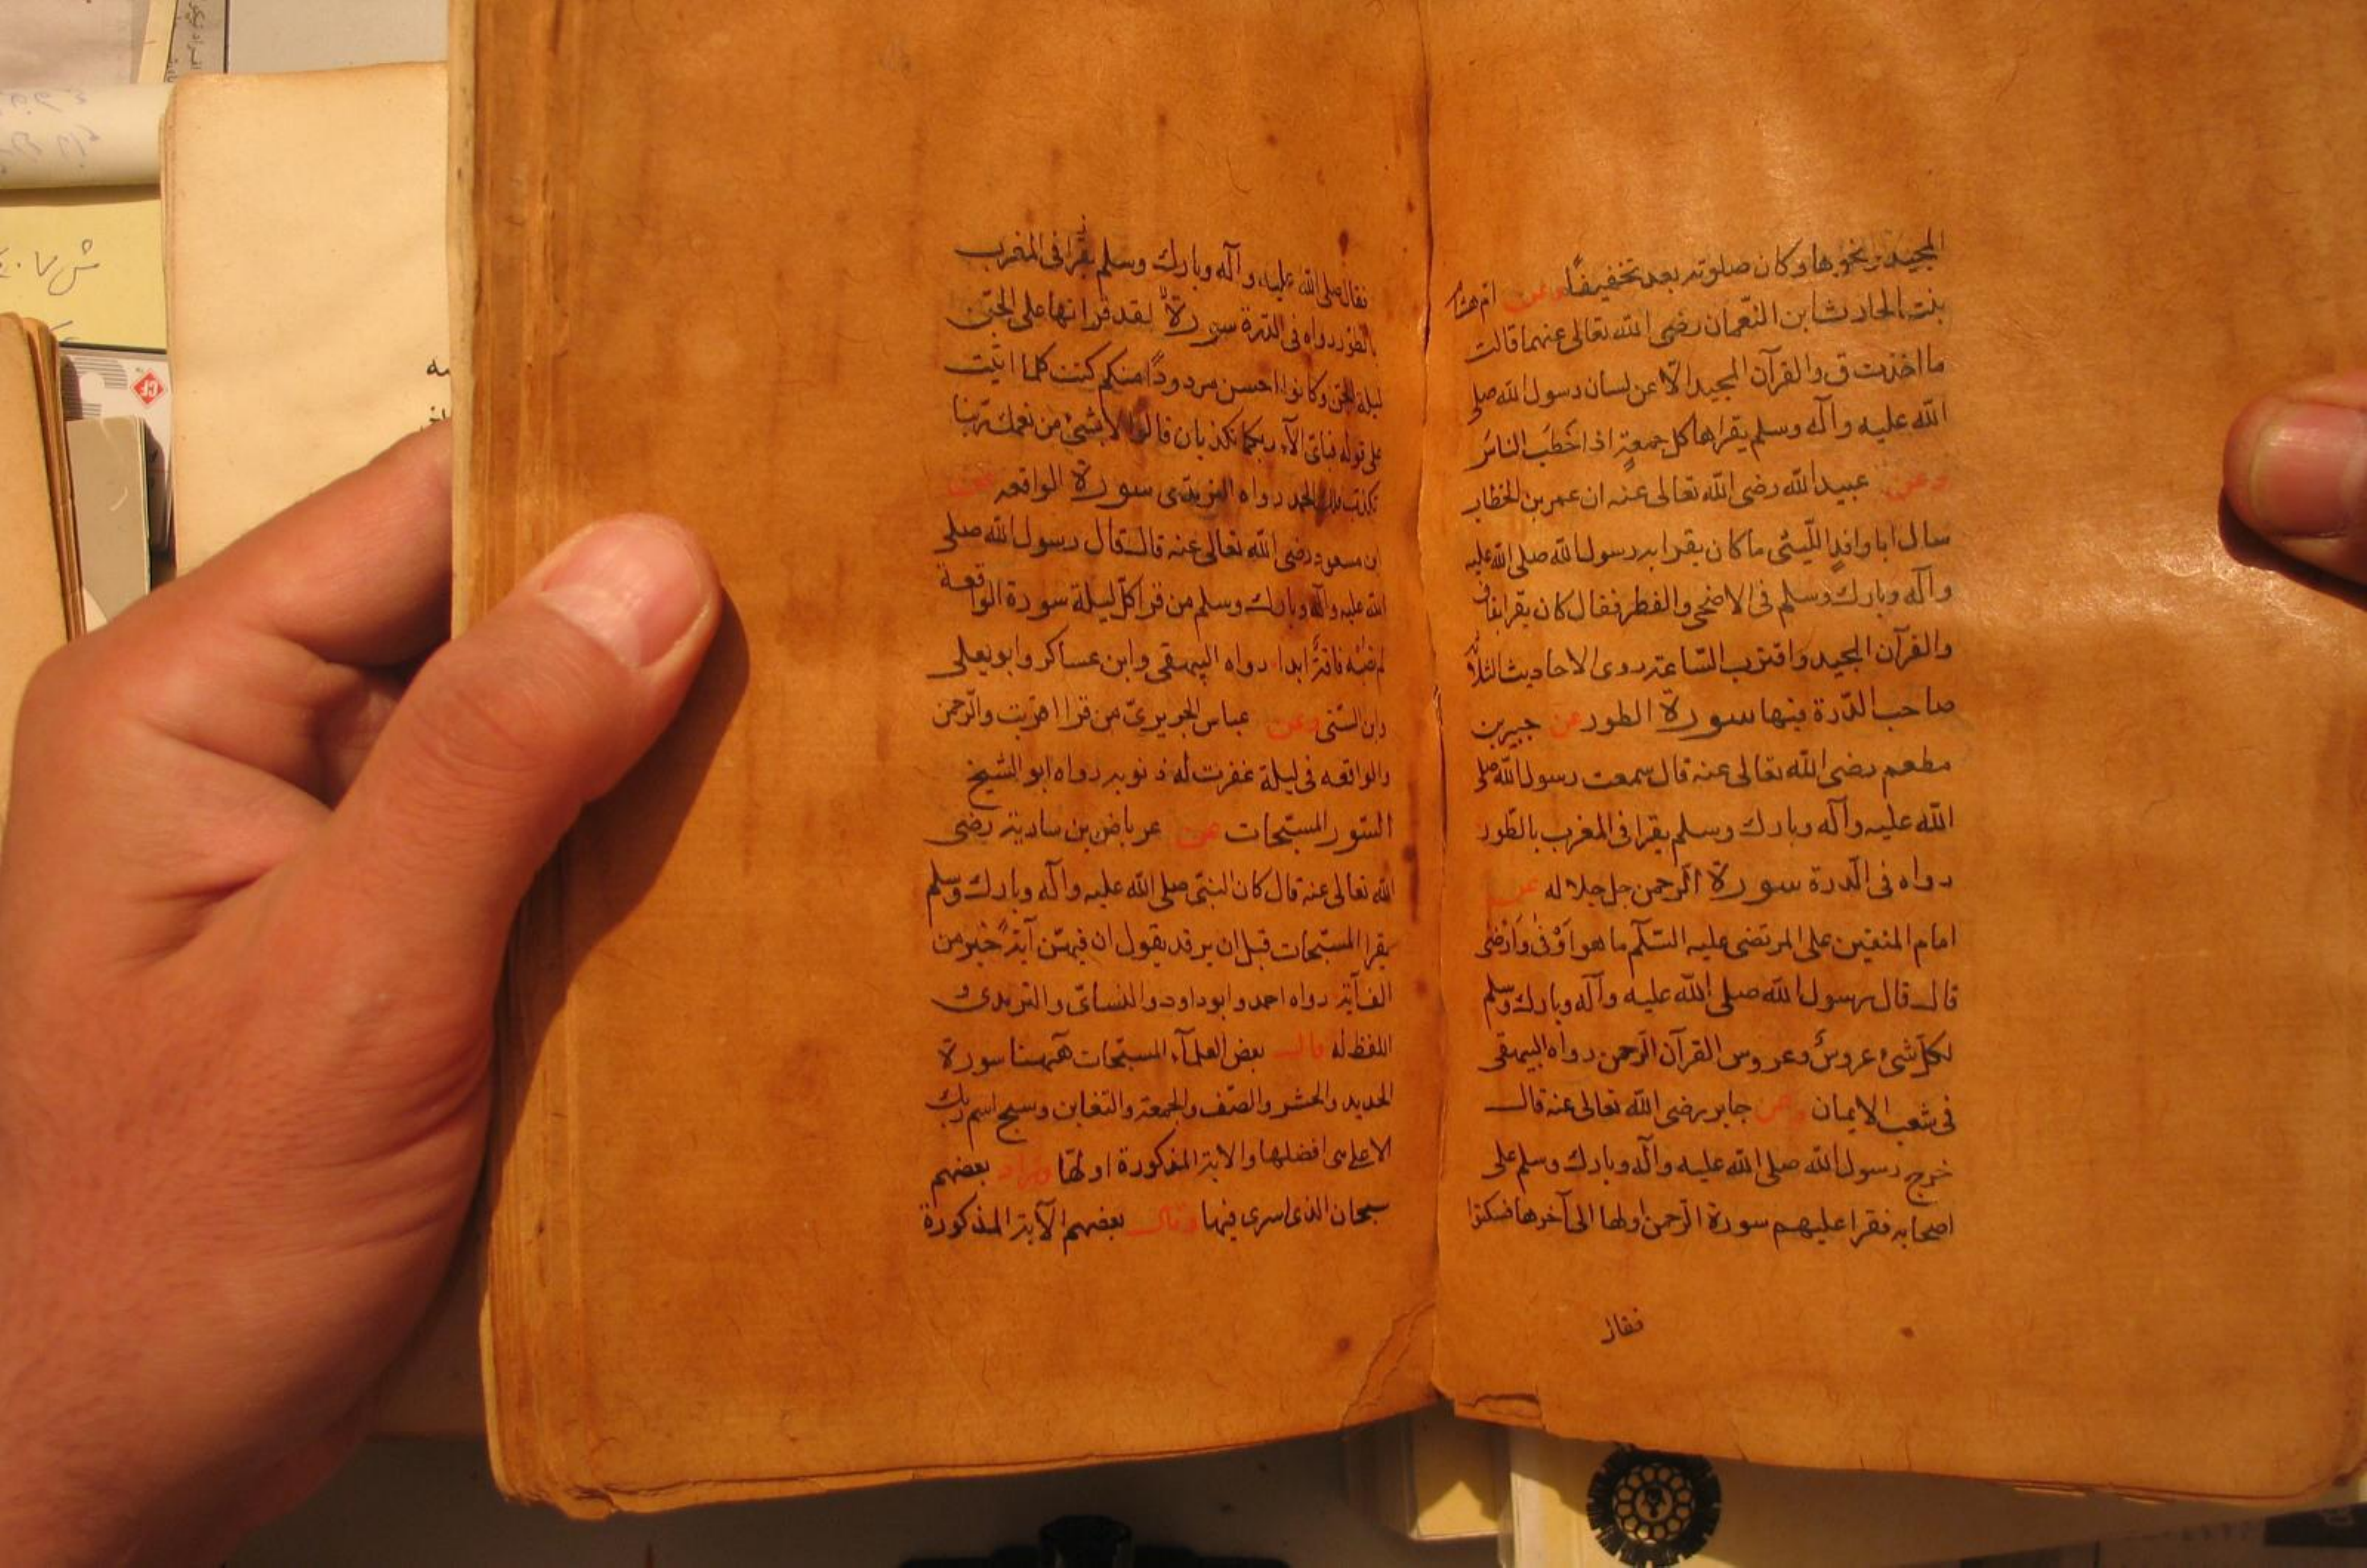 المجيد ونحوها وكان صلوته بعد تخفيفًا وعن ام هشام
بنت الحارث ابن النّعمان رضى الله تعالى عنهما قالت
ما اخذت ق والقرآن المجيد الّا عن لسان رسول الله صلى
الله عليه وآله وسلم يقراها كل جمعةٍ اذا خطب الناس
وعن عبيد الله رضى الله تعالى عنه ان عمر بن الخطاب
سال ابا واقدٍ اللّيثى ما كان يقرا به رسول الله صلى الله عليه
وآله وبارك وسلم فى الاضحى والفطر فقال كان يقرا بقاف
والقرآن المجيد واقترب السّاعة روى الاحاديث الثلاثة
صاحب الدّرة فيها سورة الطور عن جبير بن
مطعم رضى الله تعالى عنه قال سمعت رسول الله صلى
الله عليه وآله وبارك وسلم يقرا فى المغرب بالطّور
رواه فى الدّرة سورة الرّحمن جل جلاله عن
امام المتقين على المرتضى عليه السّلام ما هو اَوْفىٰ وَاَرْضىٰ
قال قال رسول الله صلى الله عليه وآله وبارك وسلم
لكلّ شىء عروسٌ وعروس القرآن الرّحمن رواه البيهقى
فى شعب الايمان وعن جابر رضى الله تعالى عنه قال
خرج رسول الله صلى الله عليه وآله وبارك وسلم على
اصحابه فقرا عليهم سورة الرّحمن اولها الى آخرها فسكتوا
فقال
فقال صلى الله عليه وآله وبارك وسلم يقرا فى المغرب
بالطّور رواه فى الدّرة سورةٌ لقد قراتها على الجنّ
ليلة الجن وكانوا احسن مردودًا منكم كنت كلما اتيت
على قوله فباىّ الآء ربكما تكذبان قالوا لا بشىء من نعمك ربّنا
نكذب فلك الحمد رواه الترمذى سورة الواقعه عن
ابن مسعود رضى الله تعالى عنه قال قال رسول الله صلى
الله عليه وآله وبارك وسلم من قرا كلّ ليلة سورة الواقعة
لم تصبه فاقةٌ ابدا رواه البيهقى وابن عساكر وابو يعلى
وابن السّنى وعن عباس الجريرىّ من قرا اقتربت والرّحمن
والواقعه فى ليلة غفرت له ذنوبه رواه ابو الشّيخ
السّور المسبّحات عن عرباض بن سارية رضى
الله تعالى عنه قال كان النبىّ صلى الله عليه وآله وبارك وسلم
يقرا المسبّحات قبل ان يرقد يقول ان فيهنّ آيةً خير من
الف آية رواه احمد وابو داود والنسائىّ والترمذى و
اللفظ له قال بعض العلمآء المسبّحات هٓهنا سورة
الحديد والحشر والصّف والجمعة والتغابن وسبح اسم ربك
الاعلى افضلها والاية المذكورة اولهّا وزاد بعضهم
سبحان الذى اسرى فيها وقال بعضهم الآية المذكورة